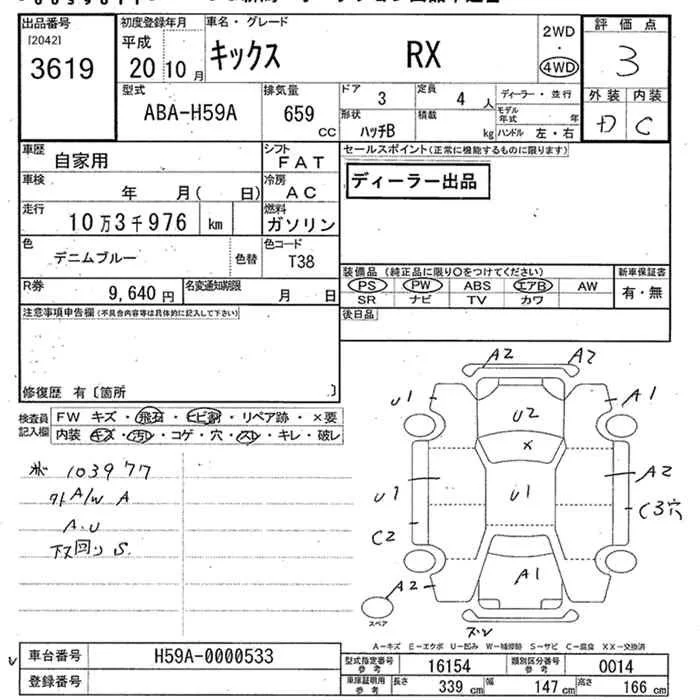 出品番号
[2042]
3619
初度登録年月
平成
20 10 月
車名・グレード
キックス RX
2WD
・
4WD
評価点
3
外装 内装
D C
型式
ABA-H59A
排気量
659 CC
ドア 3
定員 4 人
形状 ハッチB
積載 kg
ディーラー・並行
モデル年式 年
ハンドル 左・右
車歴 自家用
シフト FAT
セールスポイント(正常に機能するものに限ります)
ディーラー出品
車検 年 月( 日)
冷房 AC
走行 10万3千976 km
燃料 ガソリン
色 デニムブルー
色替
色コード T38
R券 9,640 円
名変通知期限 月 日
装備品(純正品に限り○をつけてください)
PS PW ABS エアB AW
SR ナビ TV カワ
新車保証書
有・無
後日品
注意事項申告欄(不具合内容等は具体的に記入して下さい)
修復歴 有〔箇所 〕
検査員記入欄
FW キズ・飛石・ヒビ割・リペア跡・×要
内装 キズ・汚レ・コゲ・穴・スレ・キレ・破レ
103977
A/W A
A.U
下ス回り S.
A2 A2
U1 A1
U2
X
U1 U1 A2
C2 C3穴
A2 A1
スペア
スレ
A-キズ E-エクボ U-凹み W-補修跡 S-サビ C-腐食 XX-交換済
車台番号 H59A-0000533
登録番号
型式指定番号 参考 16154
類別区分番号 参考 0014
車庫証明用 参考 長さ 339 cm 幅 147 cm 高さ 166 cm